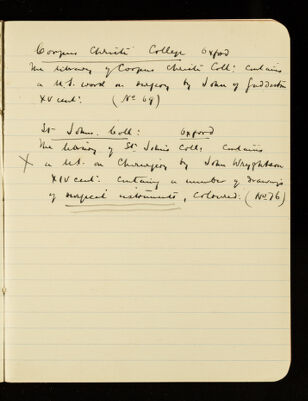 Corpus Christi College Oxford
The library of Corpus Christi Coll: contains
a M.S. work on surgery by John of Gaddesden
XV cent: (No 69)
St Johns. Coll: Oxford
The library of St John's Coll: contains
X a M.S. on Chirurgery by John Wryghtson
XIV cent: containing a number of drawings
of surgical instruments, coloured. (No 76)